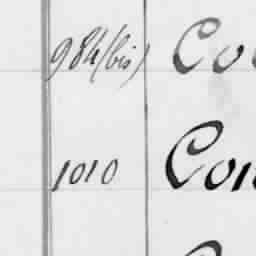 984(bis) Co
1010 Con